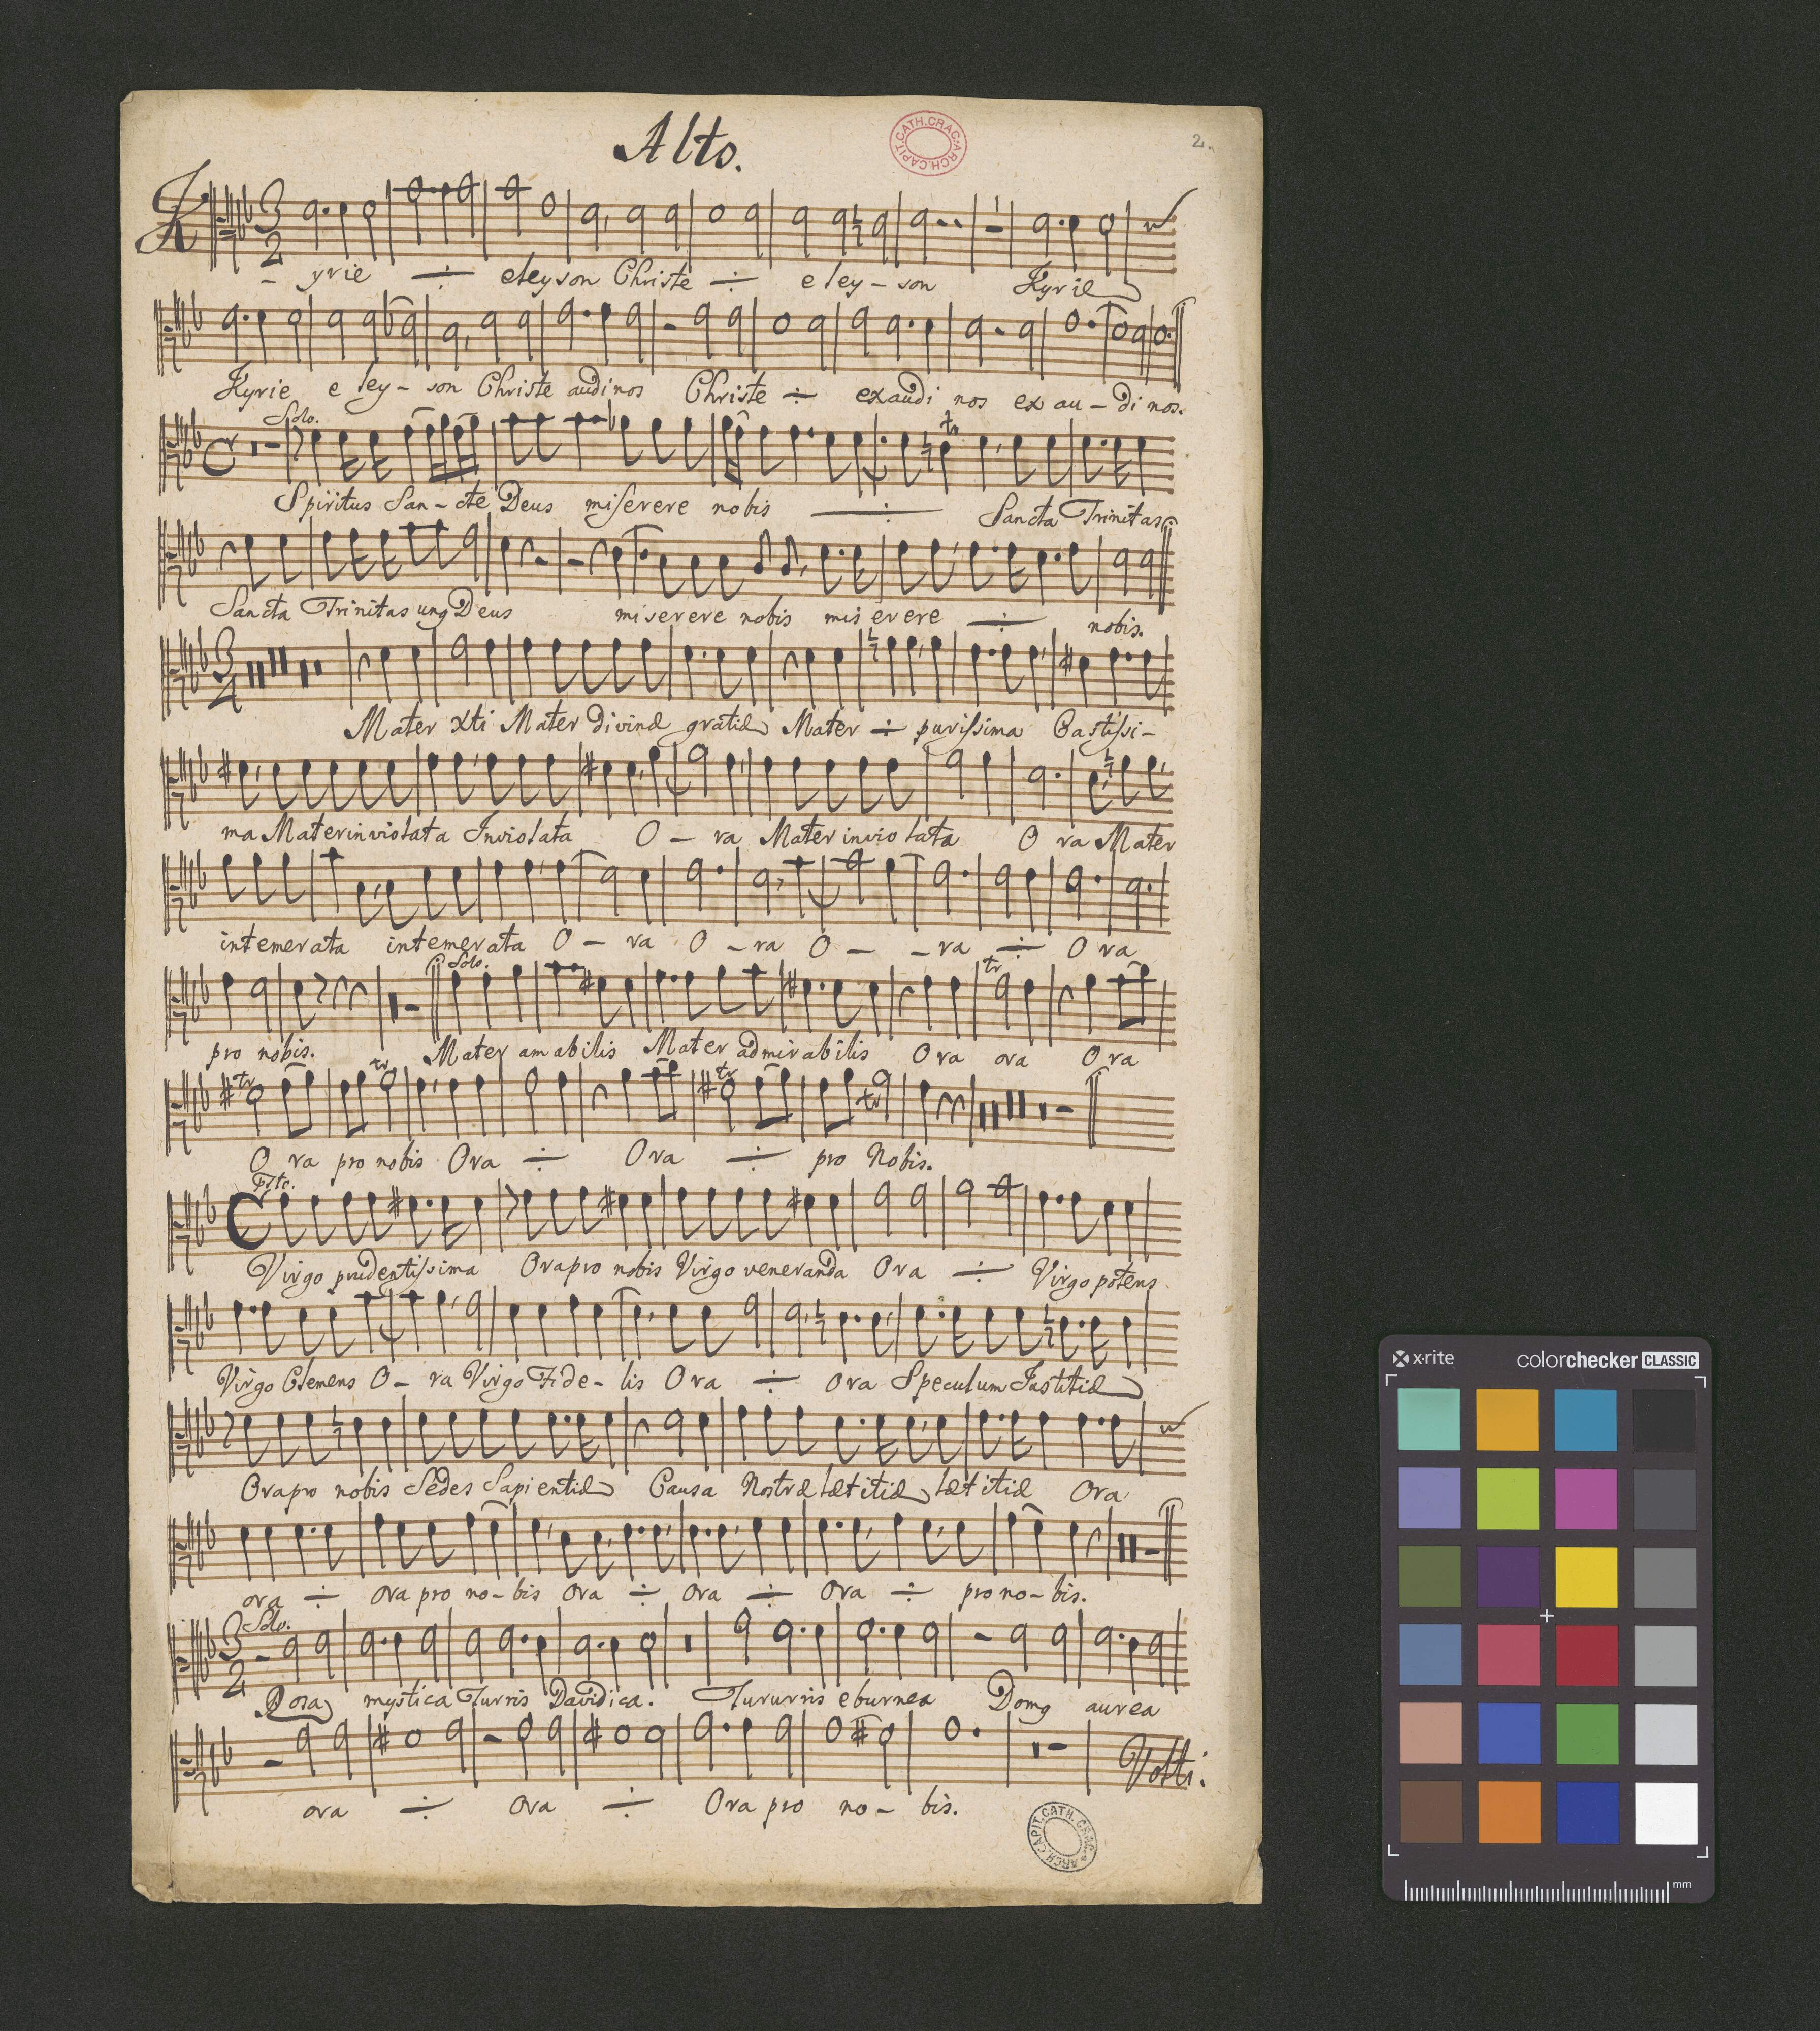 Alto.
ARCH.CAPIT.CATH.CRAC.
2.
3
2
Kyrie ÷ eleyson Christe ÷ e ley - son Kyrie
Kyrie e ley - son Christe audi nos Christe ÷ exaudi nos ex au - di nos.
Solo.
tr
Spiritus San - cte Deus miserere nobis ÷ Sancta Trinitas
Sancta Trinitas ung Deus miserere nobis miserere ÷ nobis.
3
4
Mater Xti Mater divinæ gratiæ Mater ÷ purissima Castissi -
ma Mater inviolata Inviolata O - ra Mater inviolata O ra Mater
intemerata intemerata O - ra O - ra O - - ra ÷ O ra
Solo.
tr
pro nobis. Mater amabilis Mater admirabilis O ra ora O ra
tr tr tr tr
O ra pro nobis Ora ÷ Ora ÷ pro Nobis.
Fte.
C
Virgo prudentissima Ora pro nobis Virgo veneranda Ora ÷ Virgo potens
Virgo Clemens O - ra Virgo Fide - lis Ora ÷ ora Speculum Justitiæ
Ora pro nobis Sedes Sapientiæ Causa Nostræ lætitiæ lætitiæ Ora
ora ÷ ora pro no - bis ora ÷ ora ÷ ora ÷ pro no - bis.
Solo.
3
2
Rosa mystica Turris Davidica. Tururris eburnea Domg aurea
ora ÷ ora ÷ Ora pro no - bis.
Volti.
ARCH.CAPIT.CATH.CRAC.
x·rite colorchecker CLASSIC
mm